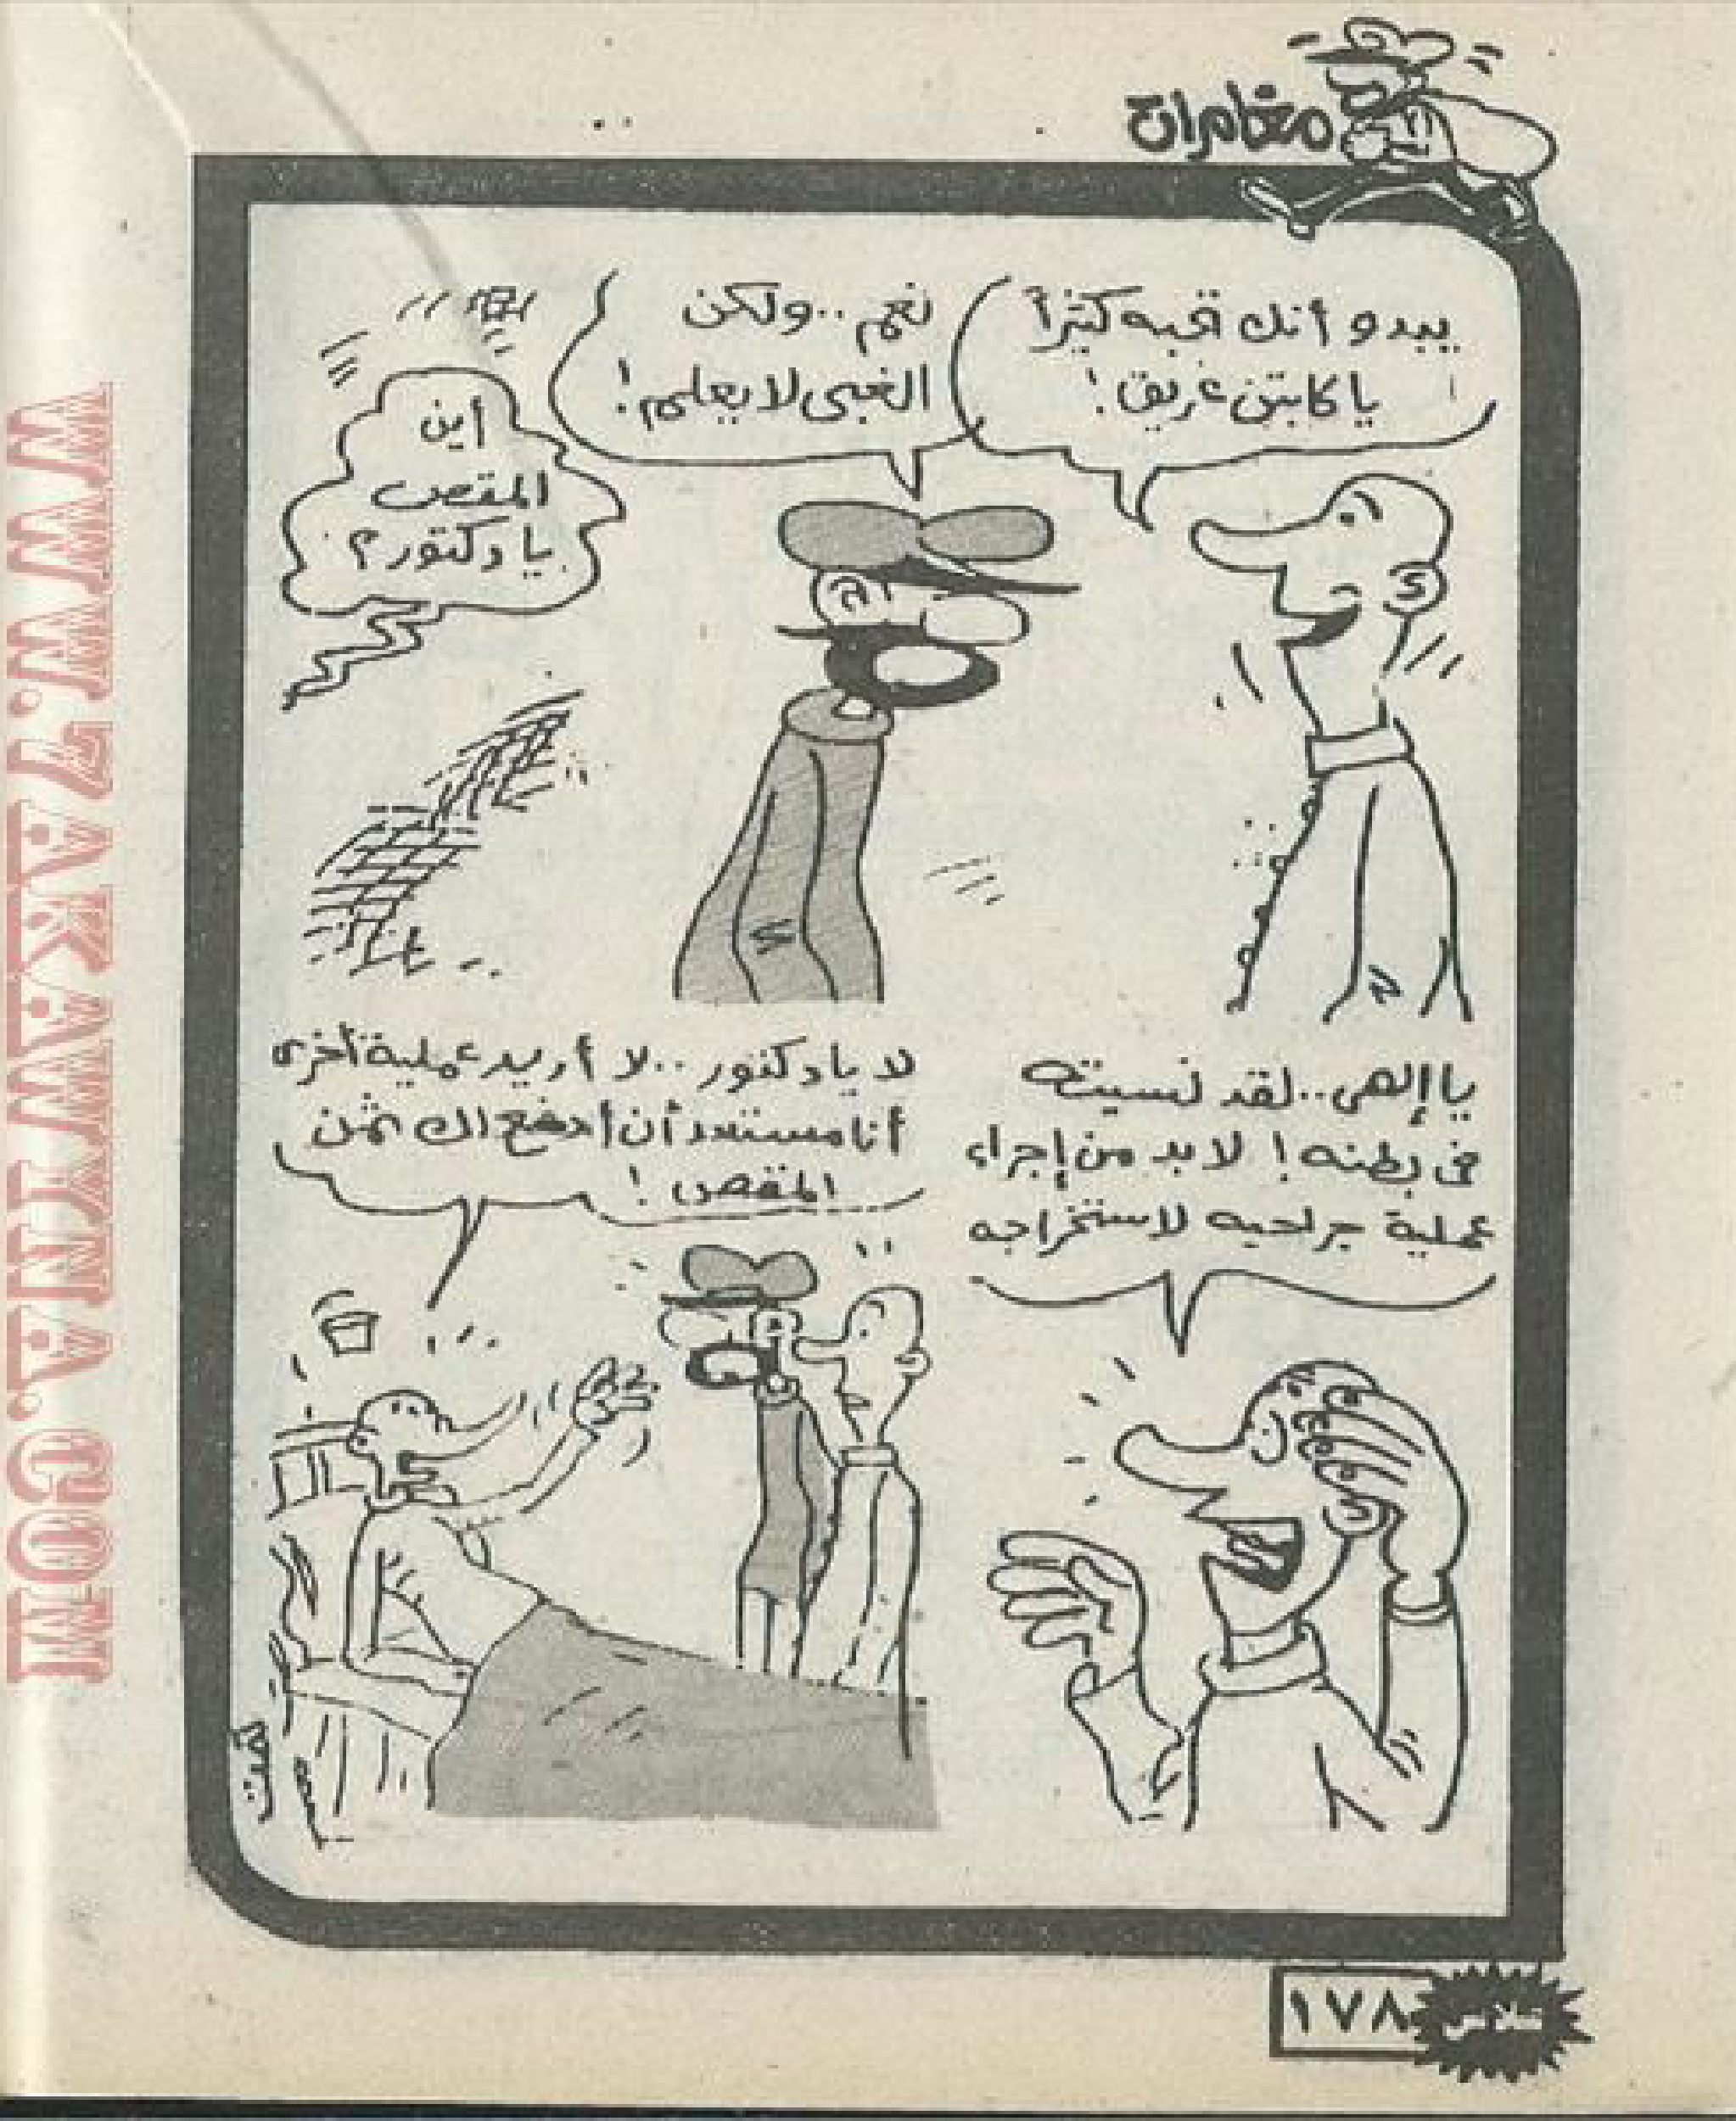 مغامرات
يبدو أنك تحبه كثيراً
يا كابتن غريق!
نعم.. ولكن
الغبى لا يعلم!
أين
المقص
يا دكتور؟
يا إلهى.. لقد نسيته
فى بطنه! لا بد من إجراء
عملية جراحيه لاستخراجه
لا يا دكتور.. لا أريد عملية أخرى
أنا مستعد أن أدفع لك ثمن
المقص!
تمت
فلاش
١٧٨
WWW.7AKAWINA.COM